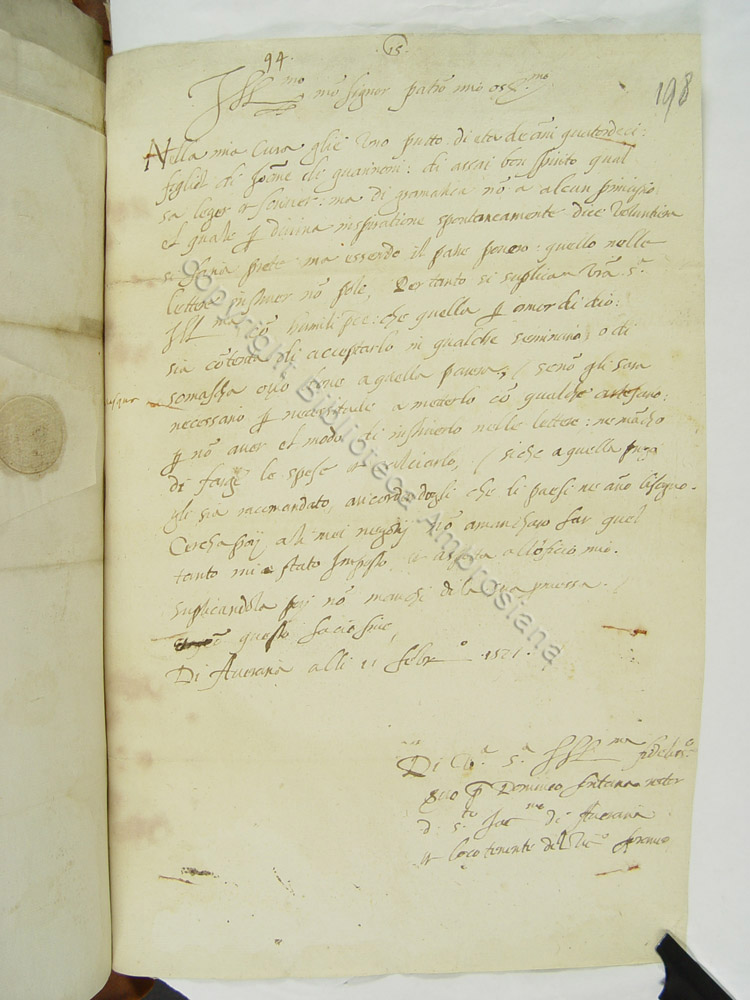 94 15
198
Ill.mo mō signor patrō mio oss.mo
Nella mia cura glie uno putto di eta de āni quatordeci:
figliol di Joāne di guarinoni: di assai bon spirito qual
sa leger et scriver: ma di gramatica nō a alcun principio
el quale p divina inspiratione spontaneamente dice voluntiera
si faria prete ma essendo il patre povero quello nelle
lettere instruer nō pole, Per tanto si suplica v.ra s.a
Ill.ma cō humil pce: che quella p amor di dio:
sia cōtenta di acceptarlo in qualche seminario, o di
somascha ove a quella parera, / senō gli sara
necessario p necessitade a metterlo cō qualche artesano:
p nō aver el modo di instruerlo nelle lettere: ne mācho
di fargē le spese et, / siche a quella
gli sia racomandato, aricordādogli che li paesi ne āno bisogno.
Circha poi alli mei negotij nō amancharo far quel
tanto mi e stato imposto, et aspeta all officio mio.
suplicandola poi nō manchi di la sua promessa. /
questo facio fine,
Di Averaria alli 11 febr.o 1571.
Di v.a s.a Ill.ma fideliss.o
Suo p Domenico fontana rettor
d s.to Jac.mo di Averaria
et loco tenente del vic.o foraneo
copyright Biblioteca Ambrosiana